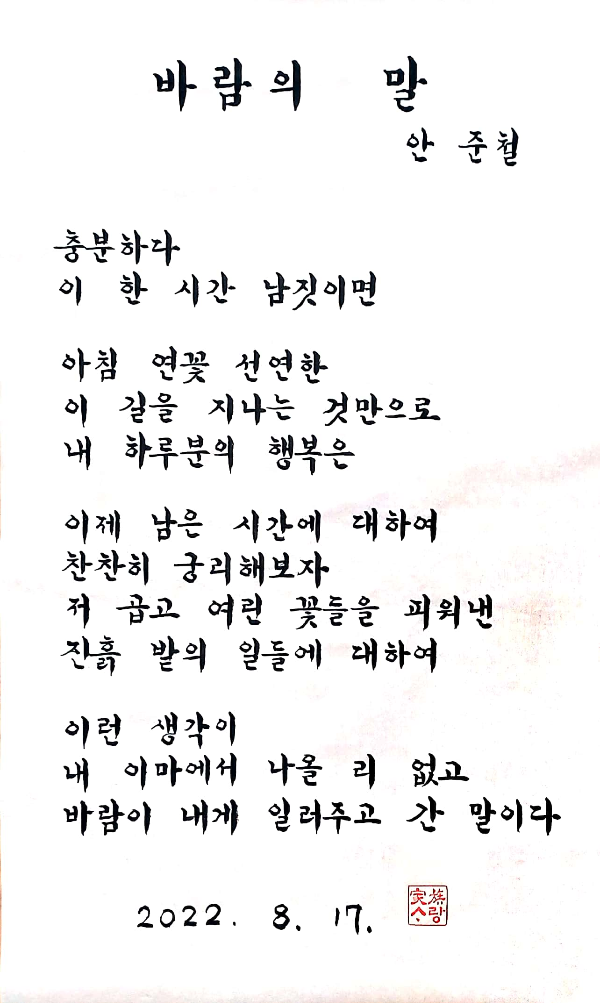 바람의 말
안 준철
충분하다
이 한 시간 남짓이면
아침 연꽃 선연한
이 길을 지나는 것만으로
내 하루분의 행복은
이제 남은 시간에 대하여
찬찬히 궁리해보자
저 곱고 여린 꽃들을 피워낸
진흙 밭의 일들에 대하여
이런 생각이
내 이마에서 나올 리 없고
바람이 내게 일러주고 간 말이다
2022. 8. 17.